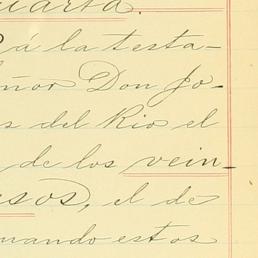 uarta.
á la testa-
eñor Don Jo-
s del Rio el
de los vein-
esos, el de
uando estos